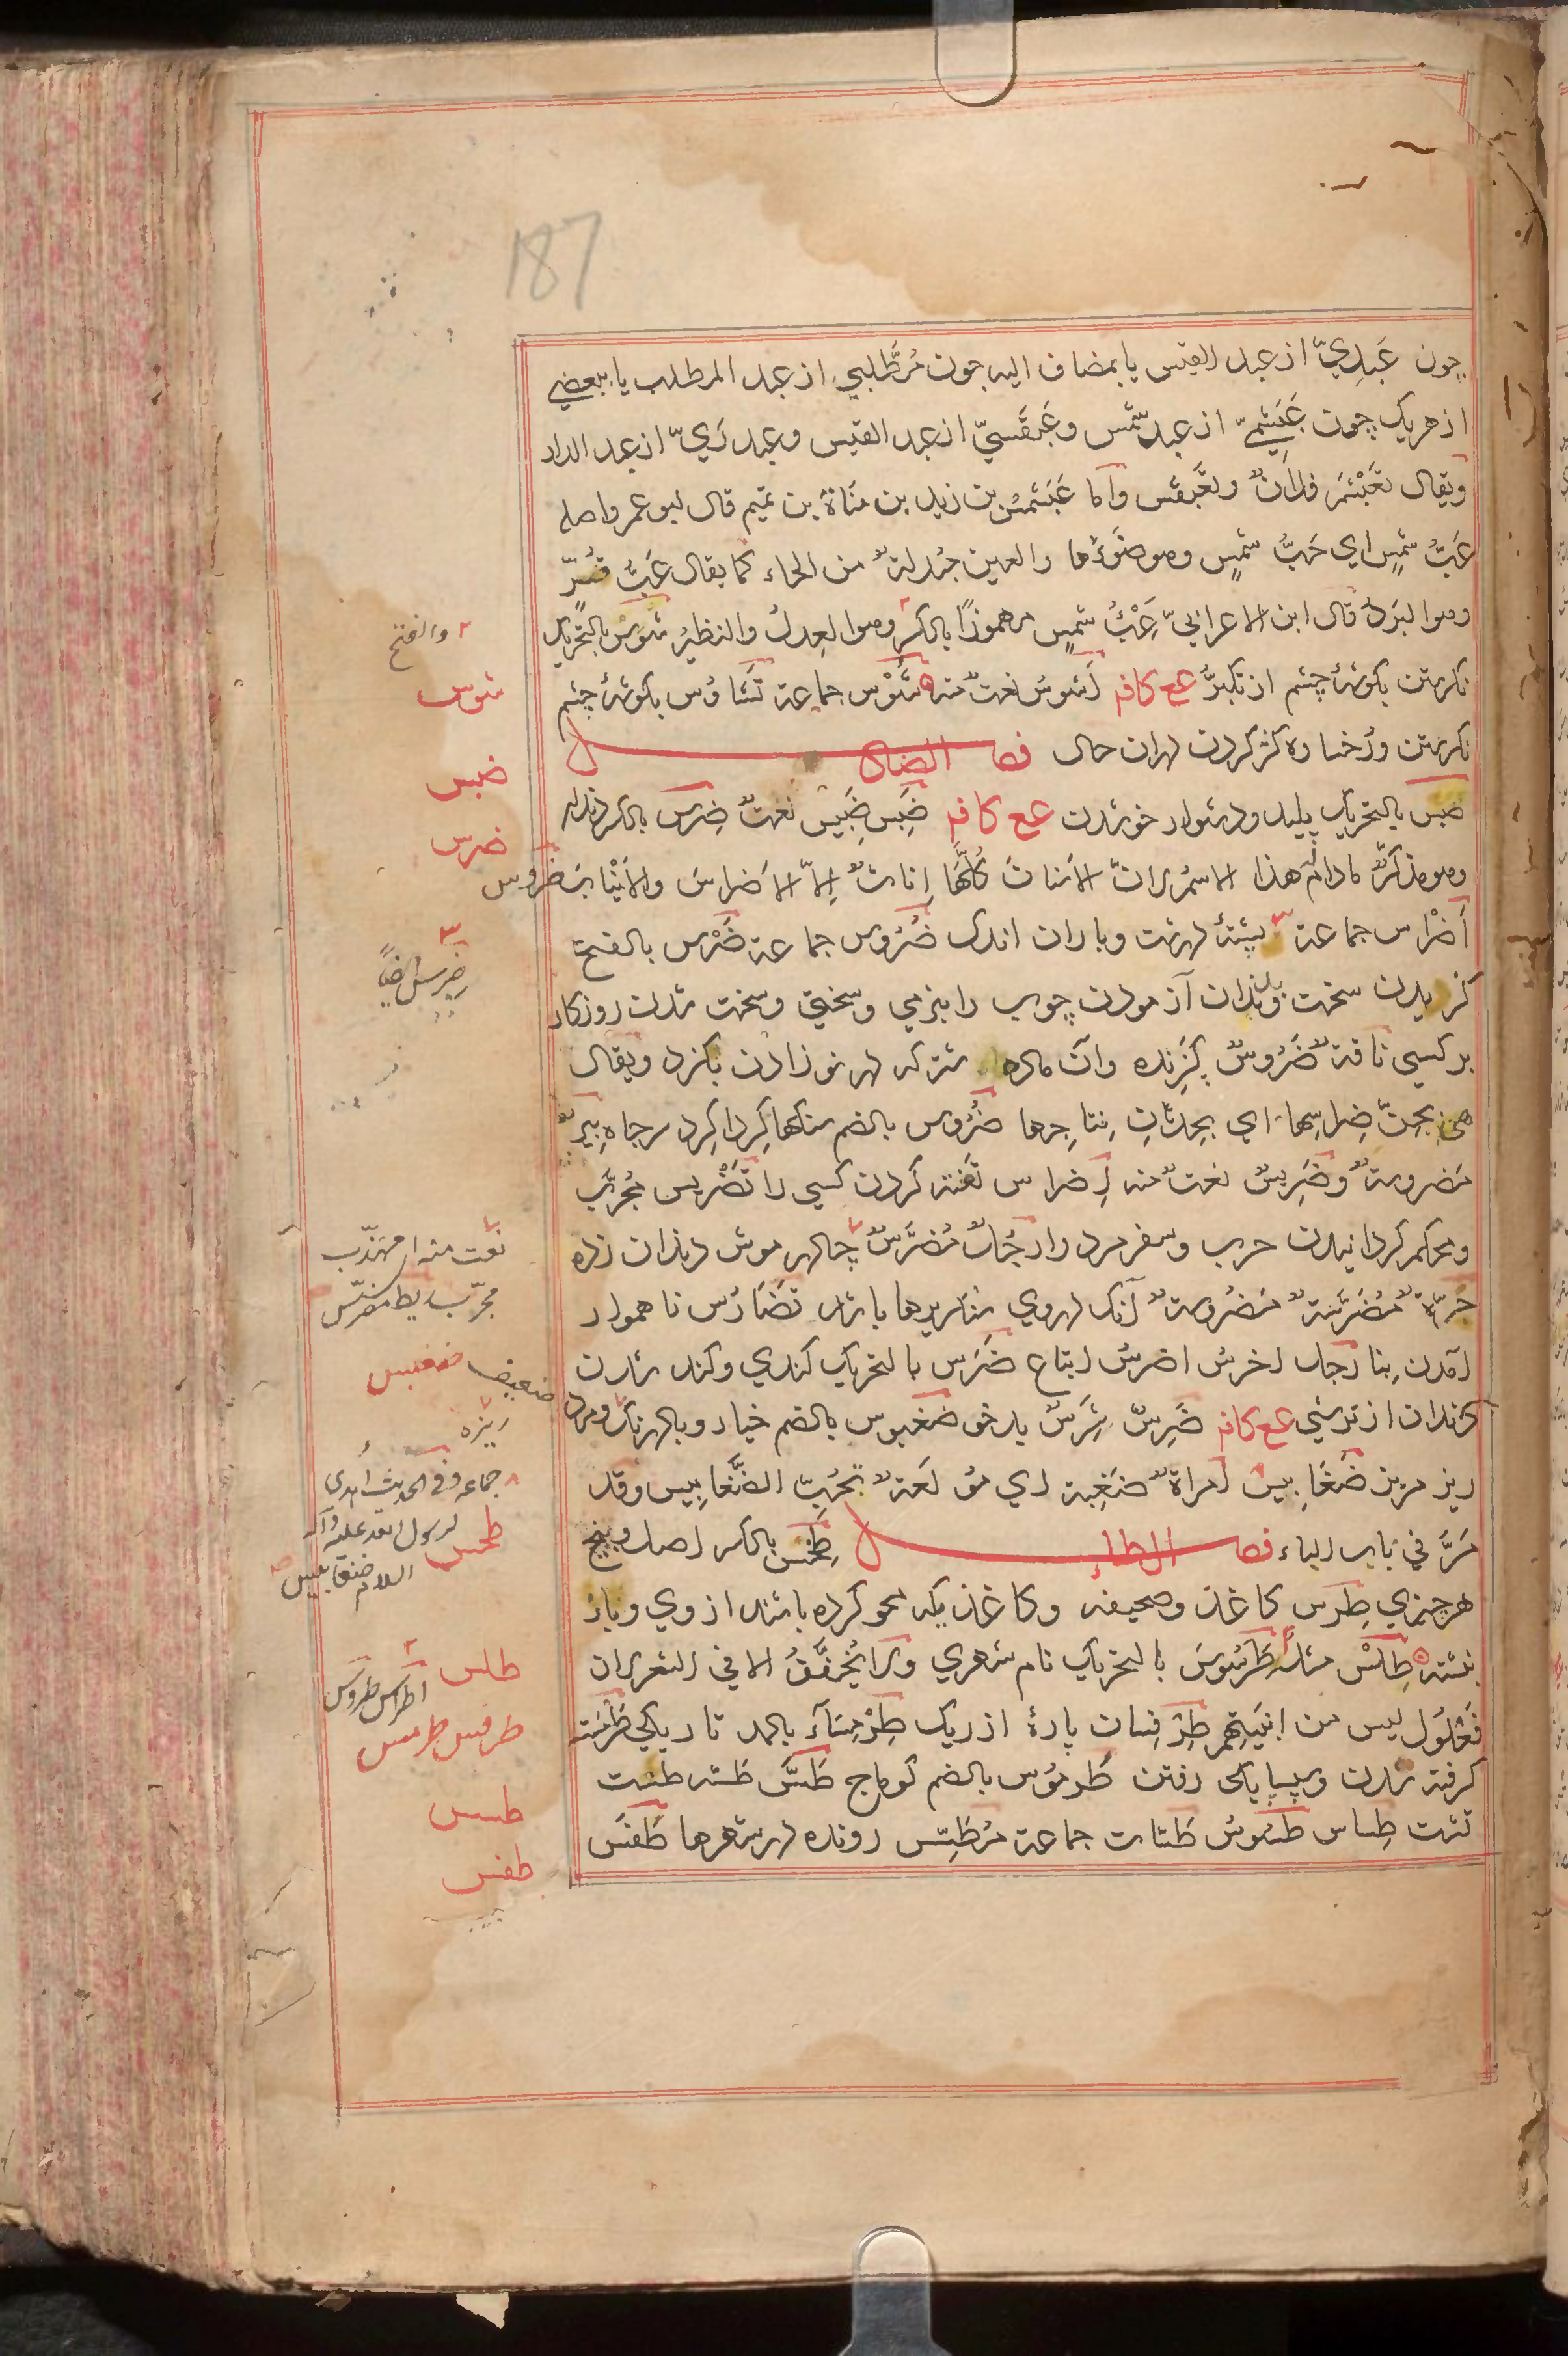 187
چون عَبدِيّ از عبد القيس يا بمضاف اليه چون مُطَّلِبي از عبد المطلب يا ببعضي
از هريک چون عَبشَمِيّ از عبد شمس وعَبقَسيّ از عبد القيس وعبدَرِيّ از عبد الدار
ويقال تَعَبْشَمَ فلانٌ وتَعَبقَس واما عَبشَمسُ بن زيد بن مَناةَ بن تميم قال ابو عمرو اصله
عَبُّ شمسٍ اي حَبُّ شمسٍ وهو ضَوءُها والعين مبدلةٌ من الحاء كما يقال عَبُّ قُرٍّ
وهو البَرَدُ قال ابن الاعرابيّ عِبْءُ شمسٍ مهموزًا بالكسر وهو العِدلُ والنظيرُ شَوَس بالتحريک
نکرستن بکوشهٔ چشم از تکبرُّ عع کافم اَشوسُ نعتٌ منه شُوْس جماعة تَشاوُس بکوشهٔ چشم
نکرستن ورُخساره کژ کردن دران حال فصل الضاد
ضبس بالتحريک پليد ودشوار خو شدن عع کافم ضَبِس ضَبِيس نعتٌ ضِرس بالکسر دندان
وهو مذکرٌّ مادام له هذا الاسم لانّ الاسنانَ کُلَّها اِناثٌ اِلّا الاضراسَ والانيابَ ضُروس
اَضْراس جماعة پشتهٔ درشت وباران اندک ضُرُوس جماعة ضَرْس بالفتح
کزيدن سخت وبدندان آزمودن چوب را بنرمي وسختي وسخت شدن روزکار
بر کسي ناقةٌ ضَرُوسٌ کزنده وآن ماده شتر که در نو زادن بکزد ويقال
هي بِجِنّ ضِراسِها اي بحِدثانِ نِتاجِها ضُرُوس بالضم سنکها کِردا کِرد سر چاه بيرٌ
مَضروسةٌ وضَرِيسٌ نعتٌ منه اِضراس تفته کردن کسي را تَضْرِيس مُجرَّب
ومحکم کردانيدن حرب وسفر مرد را رجُلٌ مُضَرَّسٌ جامه موش دندان زده
حَرّةٌ مُضَرَّسةٌ مَضروسةٌ آنکه دروي سنکريزها باشد تَضَارُس ناهموار
آمدن بِنا رجل اخرسُ اضرسُ اتباع ضَرَس بالتحريک کندي وکند شدن
دندان از ترشي عع کافم ضَرِسٌ شَرِسٌ بد خو ضغبوس بالضم خيار وبادرنک ومرد
ريز مريز ضَغابِيس امراةٌ ضَغِبة اي مولعةٌ بحُبّ الضَغابِيس وقد
مَرَّ في باب الباء فصل الطاء طِخْس بالکسر اصل وبيخ
هر چيزي طِرس کاغذ وصحيفه وکاغذيکه محو کرده باشند از وي وباز
نبشته طِلْس مثله طَرَسُوسَ بالتحريک نام شهري ولا يُخفَّفُ الا في الشعر لان
فَعْلُول ليس من ابنيتهم طِرْفِسان پارهٔ از ريک طِرْمِساء بالمد تاريکي طَرْمَسَة
کرفته شدن وبسپايکي رفتن طُرموس بالضم کوماج طَسّ طَسّه طست
تشت طِساس طسُوس طَسّات جماعة مُطَسِّس رونده در شهرها طَفَس
والفتح
شوس
ضبس
ضرس
ضِرس ايضاً
نعت منه اي مهذّب
مجرّب ايضا مضرّس
ضغبس
ضعيف
ريزه
جماعة وفي الحديث اُهدي
لرسول الله عليه وآله
السلام ضغابيس
طخس
طلس
اطراس طروس
طرفس طرمس
طسس
طفس